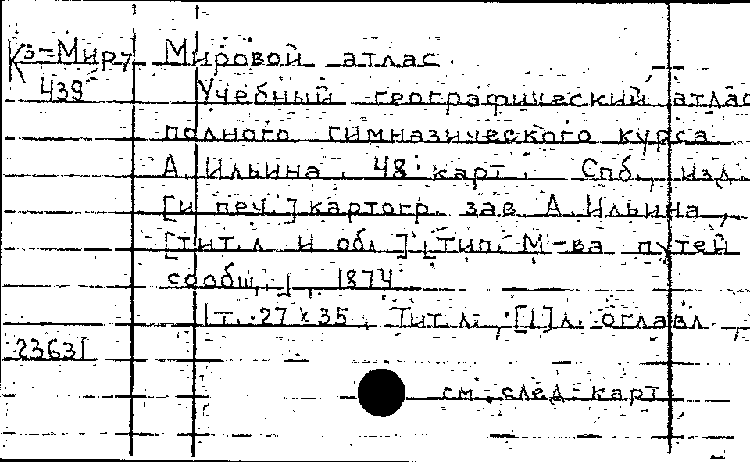 К3-Мир7 Мировой атлас.
439 Учебный географический атлас
полного гимназического курса
А. Ильина. 48 карт. Спб., изд.
[и печ.] картогр. зав. А. Ильина,
[тит. л. и обл.] [Тип. М-ва путей
сообщ.], 1874
1т. 27х35. Тит. л., [1] л. оглавл.,
23631
см. след. карт.